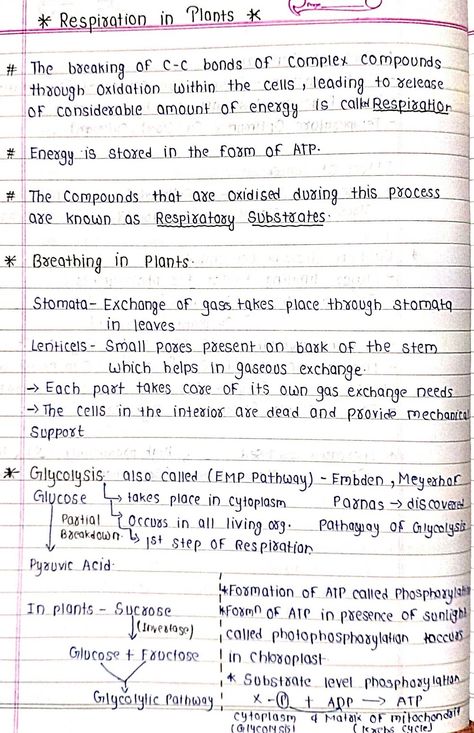 * Respiration in Plants *
# The breaking of C-C bonds of Complex compounds
through Oxidation within the cells, leading to release
of considerable amount of energy is called Respiration
# Energy is stored in the form of ATP.
# The Compounds that are oxidised during this process
are known as Respiratory Substrates.
* Breathing in Plants.
Stomata - Exchange of gass takes place through stomata
in leaves
Lenticels - Small pores present on bark of the stem
which helps in gaseous exchange.
→ Each part takes care of its own gas exchange needs
→ The cells in the interior are dead and provide mechanical
Support
* Glycolysis also called (EMP Pathway) - Embden, Meyerhof
Glucose ↳ takes place in cytoplasm Parnas → discovered
Partial ↳ Occurs in all living org. Pathway of Glycolysis
Breakdown ↳ 1st step of Respiration
Pyruvic Acid.
*Formation of ATP called Phosphorylation
In plants - Sucrose *Formn of ATP in presence of sunlight
↓(Invertase) called photophosphorylation & occurs
Glucose + Fructose in Chloroplast
* Substrate level phosphorylation
Glycolytic Pathway X - Ⓟ + ADP → ATP
cytoplasm & Matrix of mitochondria
(Glycolysis) (Krebs cycle)